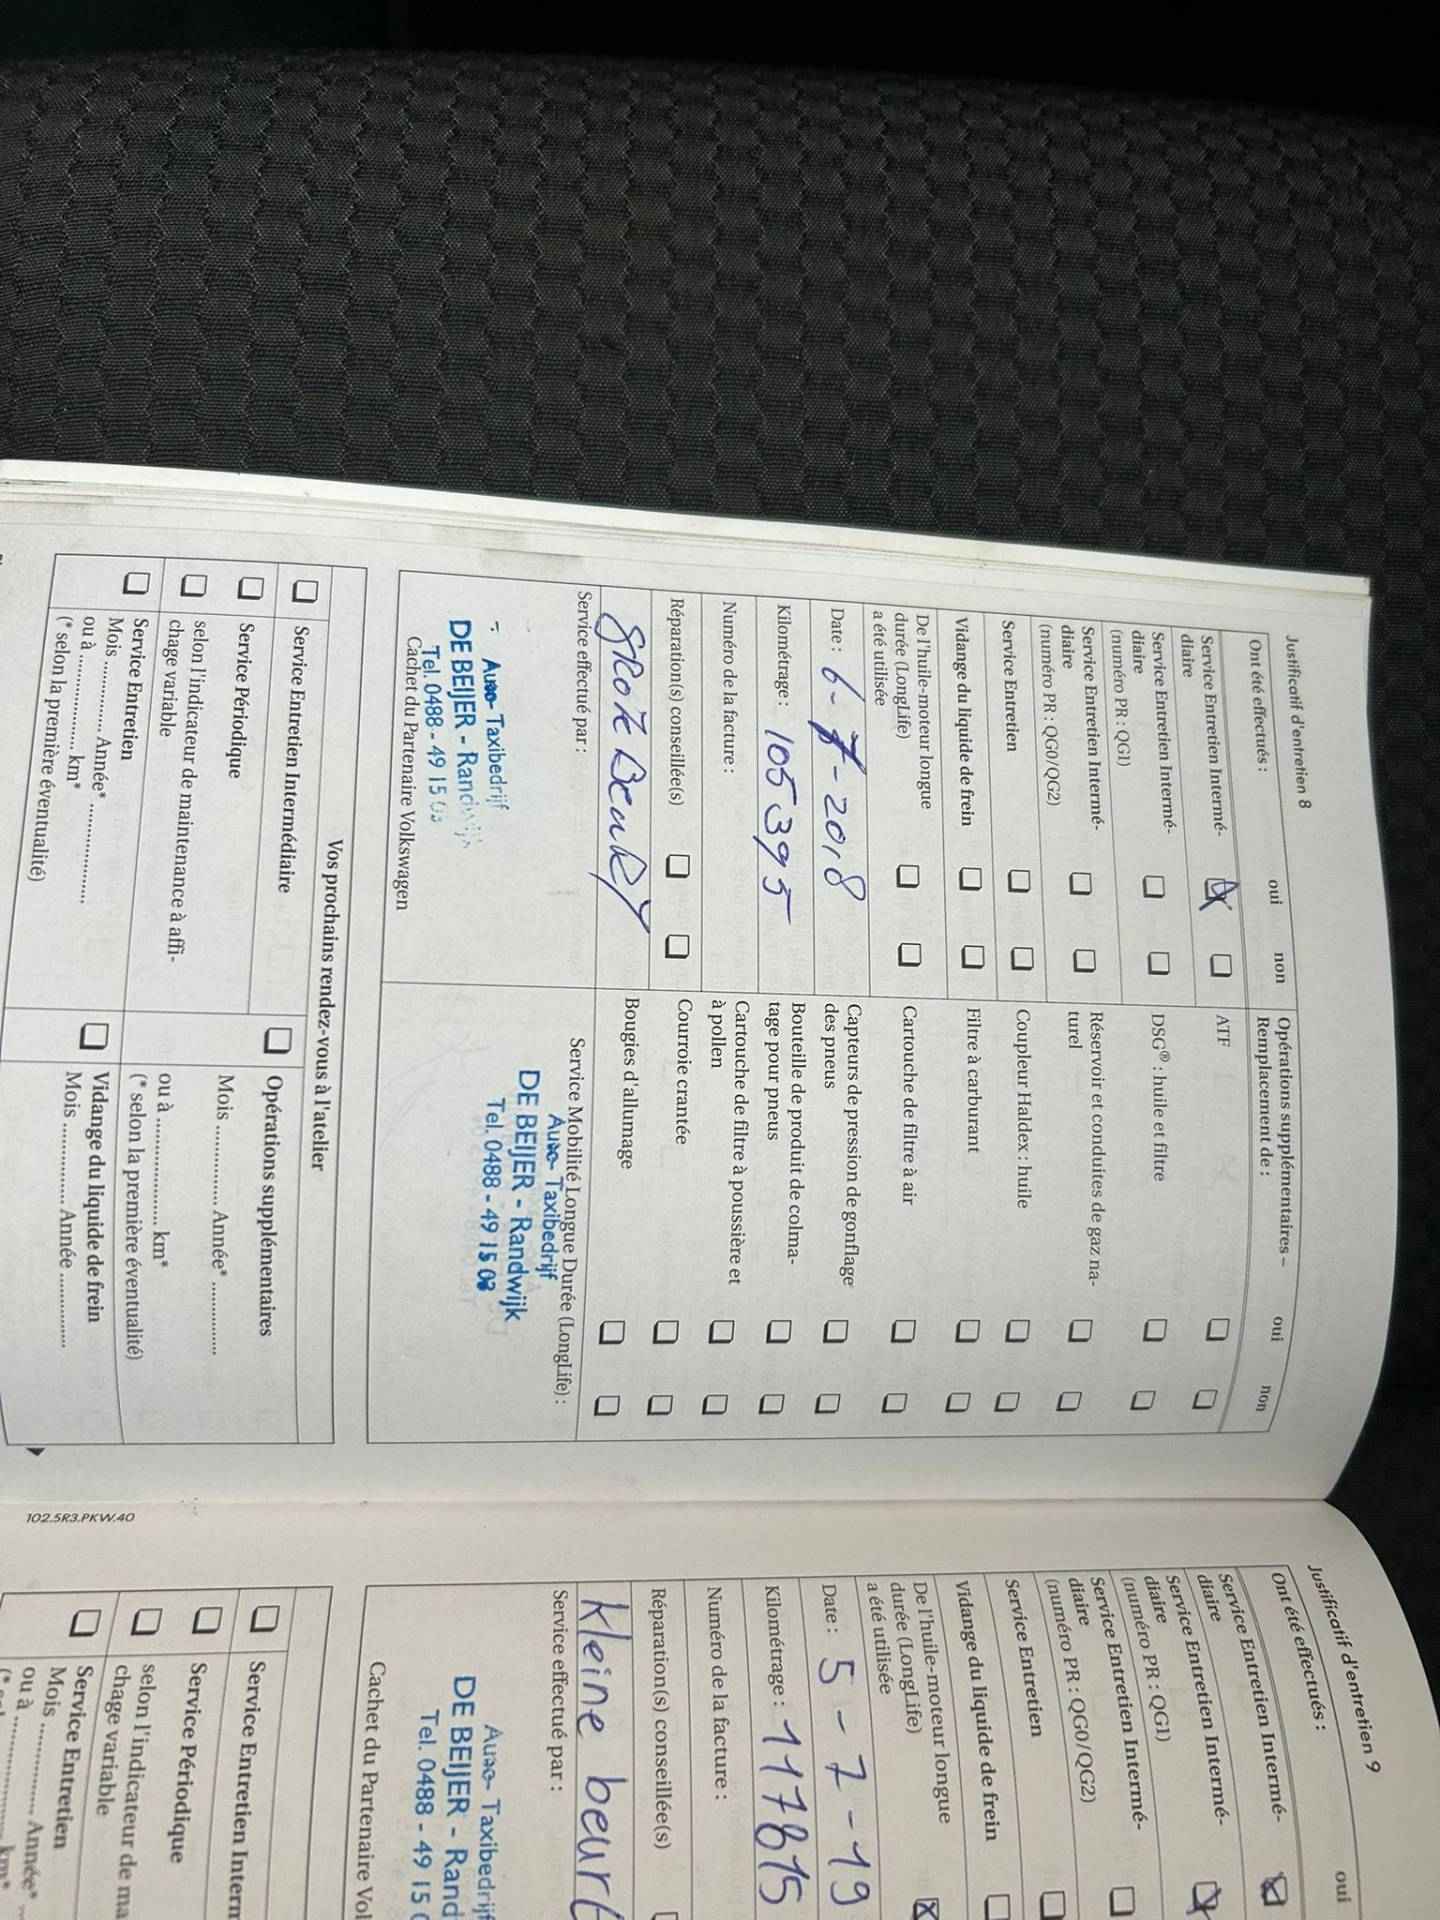 Justificatif d'entretien 8
Ont été effectués :
oui
non
Opérations supplémentaires –
Remplacement de :
oui
non
Service Entretien Intermé-
diaire
ATF
Service Entretien Intermé-
diaire
(numéro PR : QG1)
DSG® : huile et filtre
Service Entretien Intermé-
diaire
(numéro PR : QG0/QG2)
Réservoir et conduites de gaz na-
turel
Service Entretien
Coupleur Haldex : huile
Vidange du liquide de frein
Filtre à carburant
De l'huile-moteur longue
durée (LongLife)
a été utilisée
Cartouche de filtre à air
Date : 6-7-2018
Capteurs de pression de gonflage
des pneus
Kilométrage : 105395
Bouteille de produit de colma-
tage pour pneus
Numéro de la facture :
Cartouche de filtre à poussière et
à pollen
Réparation(s) conseillée(s)
Courroie crantée
Bougies d'allumage
Service effectué par :
Service Mobilité Longue Durée (LongLife) :
Auto- Taxibedrijf
DE BEIJER - Randwijk
Tel. 0488 - 49 15 03
Cachet du Partenaire Volkswagen
Auto- Taxibedrijf
DE BEIJER - Randwijk
Tel. 0488 - 49 15 03
Vos prochains rendez-vous à l'atelier
Service Entretien Intermédiaire
Service Périodique
selon l'indicateur de maintenance à affi-
chage variable
Service Entretien
Mois .................. Année* ......................
ou à ...................... km*
(* selon la première éventualité)
Opérations supplémentaires
Mois ................ Année* ................
ou à ...................... km*
(* selon la première éventualité)
Vidange du liquide de frein
Mois ................ Année ................
102.5R3.PKW.40
Justificatif d'entretien 9
Ont été effectués :
oui
Service Entretien Intermé-
diaire
Service Entretien Intermé-
diaire
(numéro PR : QG1)
Service Entretien Intermé-
diaire
(numéro PR : QG0/QG2)
Service Entretien
Vidange du liquide de frein
De l'huile-moteur longue
durée (LongLife)
a été utilisée
Date : 5-7-19
Kilométrage : 117815
Numéro de la facture :
Réparation(s) conseillée(s)
Kleine beurt
Service effectué par :
Auto- Taxibedrijf
DE BEIJER - Rand
Tel. 0488 - 49 15
Cachet du Partenaire Vol
Service Entretien Interm
Service Périodique
selon l'indicateur de ma
chage variable
Service Entretien
Mois .................. Année*
ou à ...................... km*